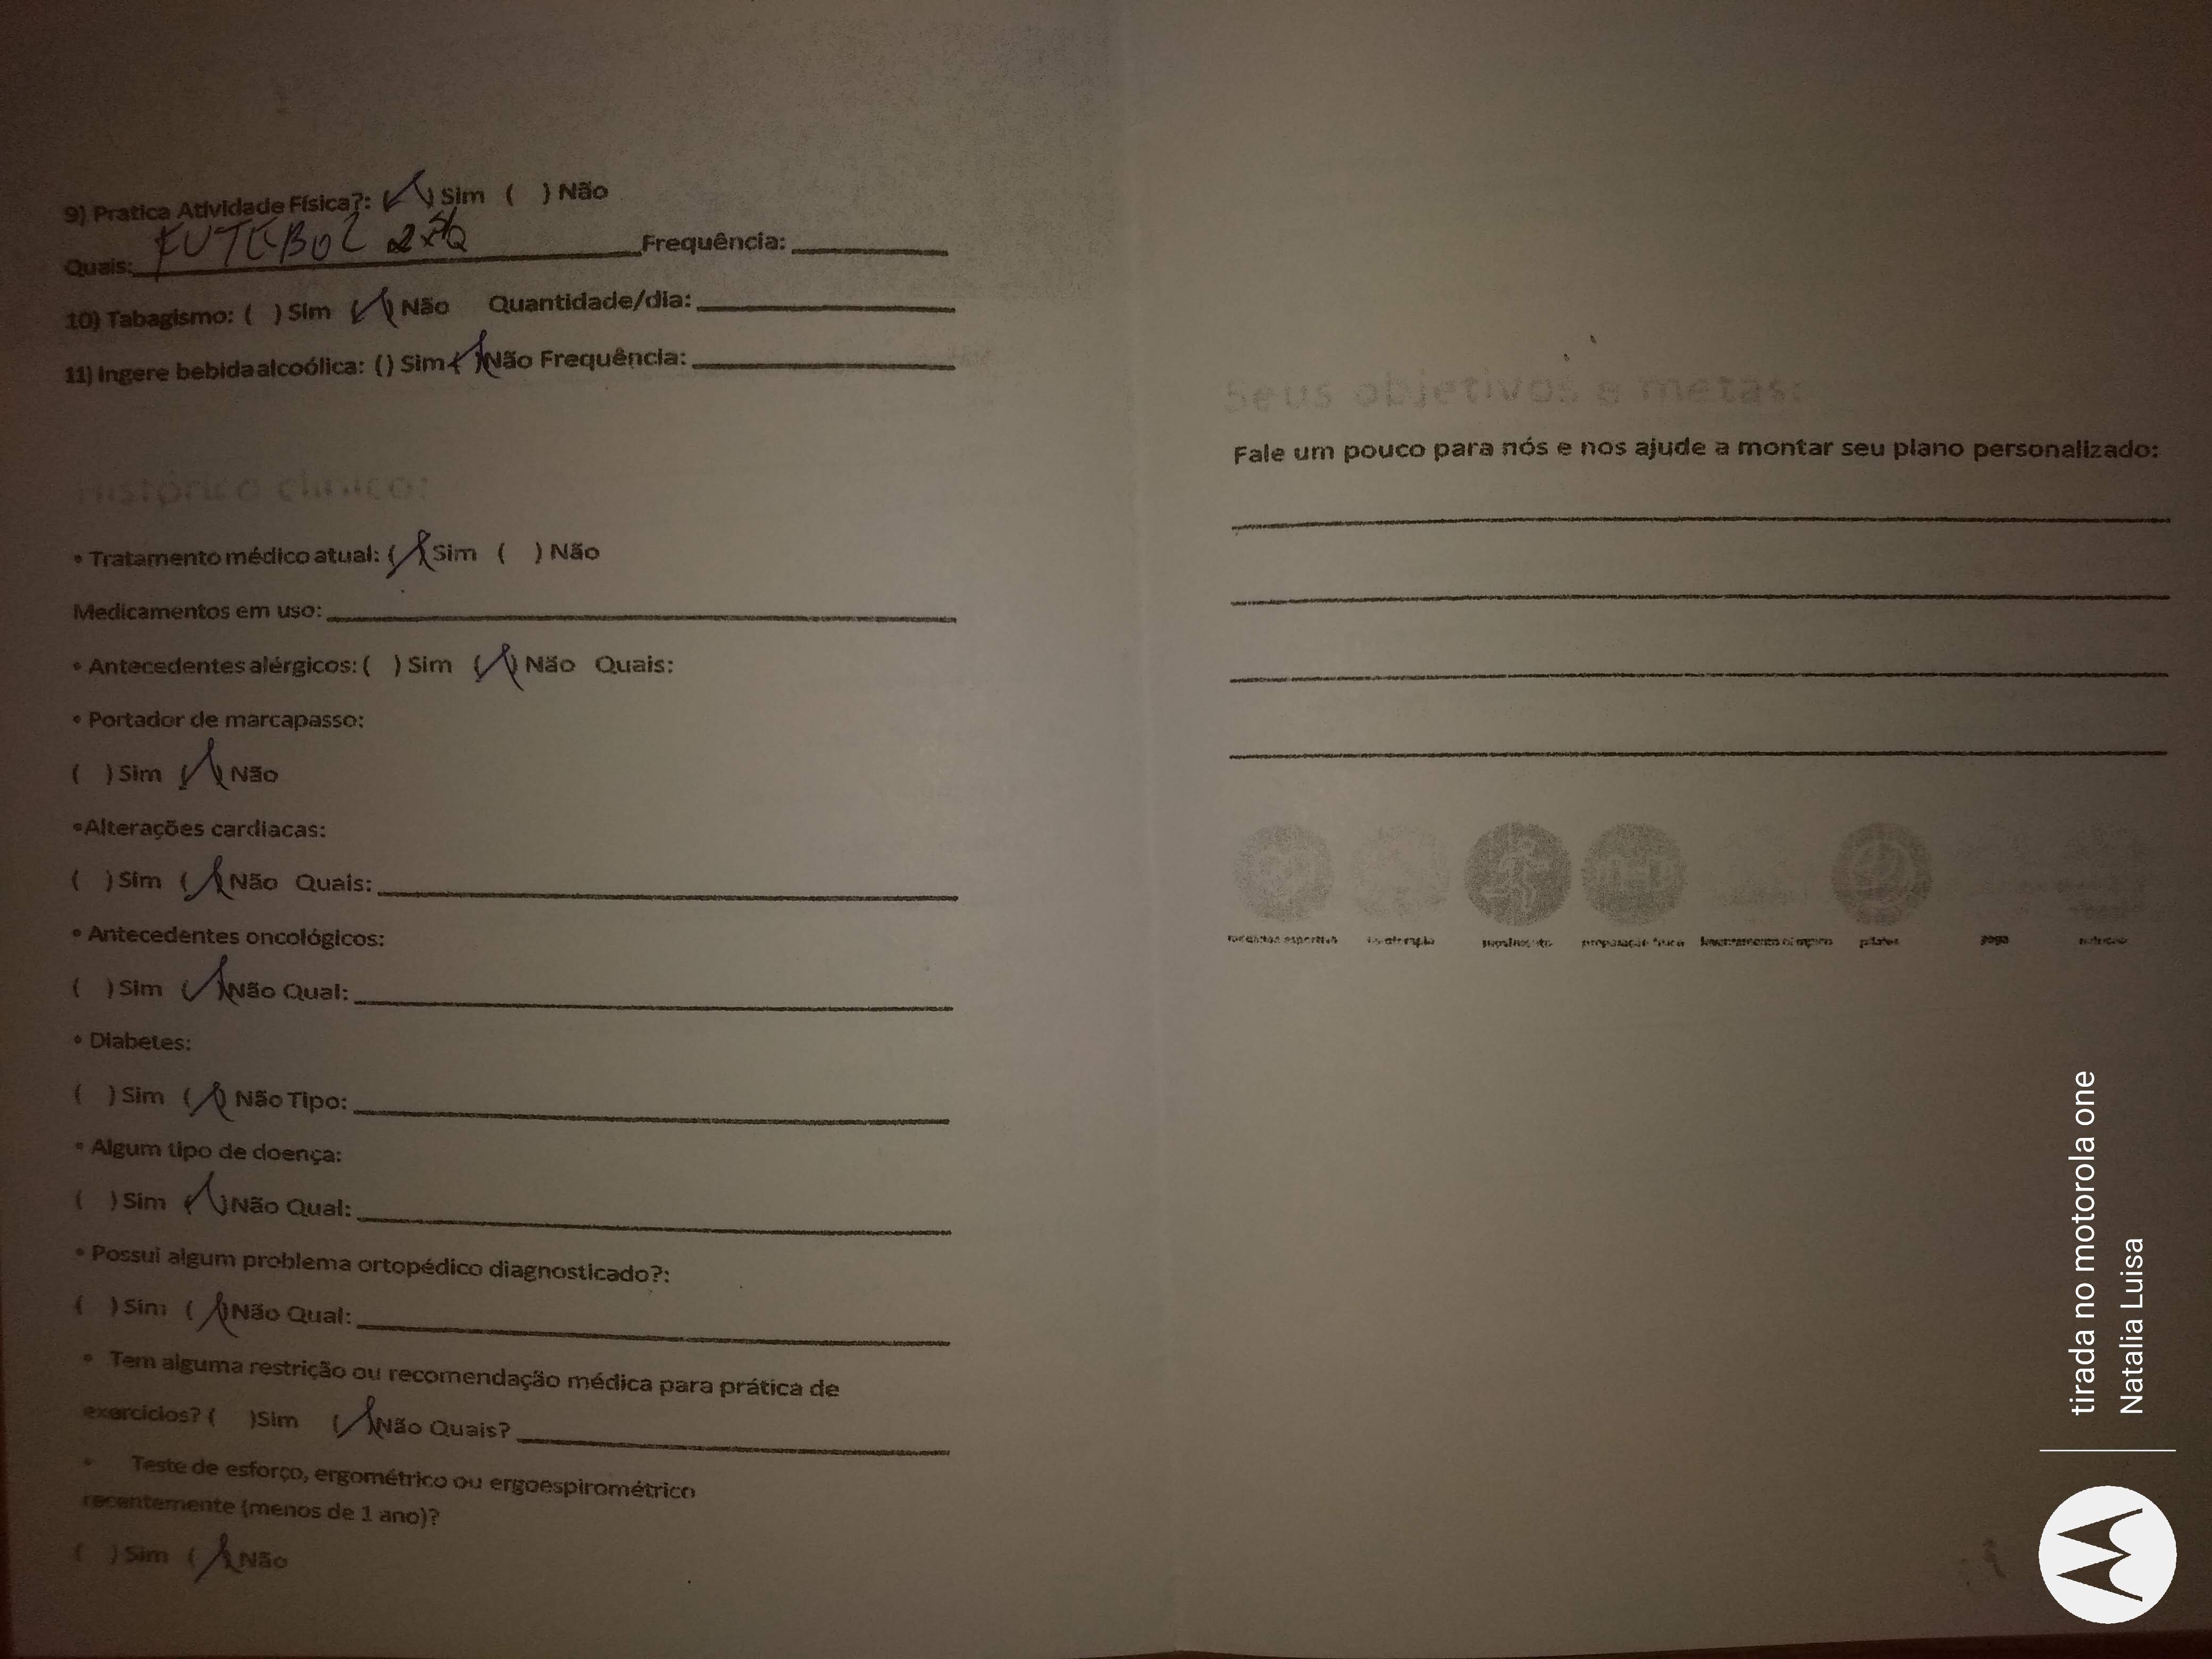 9) Pratica Atividade Física?: (✓) Sim ( ) Não
Quais: FUTEBOL 2x Frequência:
10) Tabagismo: ( ) Sim (✓) Não Quantidade/dia:
11) Ingere bebida alcoólica: () Sim (✓) Não Frequência:
Histórico clínico:
• Tratamento médico atual: (✓) Sim ( ) Não
Medicamentos em uso:
• Antecedentes alérgicos: ( ) Sim (✓) Não Quais:
• Portador de marcapasso:
( ) Sim (✓) Não
• Alterações cardíacas:
( ) Sim (✓) Não Quais:
• Antecedentes oncológicos:
( ) Sim (✓) Não Qual:
• Diabetes:
( ) Sim (✓) Não Tipo:
• Algum tipo de doença:
( ) Sim (✓) Não Qual:
• Possui algum problema ortopédico diagnosticado?:
( ) Sim (✓) Não Qual:
• Tem alguma restrição ou recomendação médica para prática de
exercícios? ( )Sim (✓) Não Quais?
• Teste de esforço, ergométrico ou ergoespirométrico
recentemente (menos de 1 ano)?
( ) Sim (✓) Não
Seus objetivos e metas:
Fale um pouco para nós e nos ajude a montar seu plano personalizado:
pilates
yoga
tirada no motorola one
Natalia Luisa